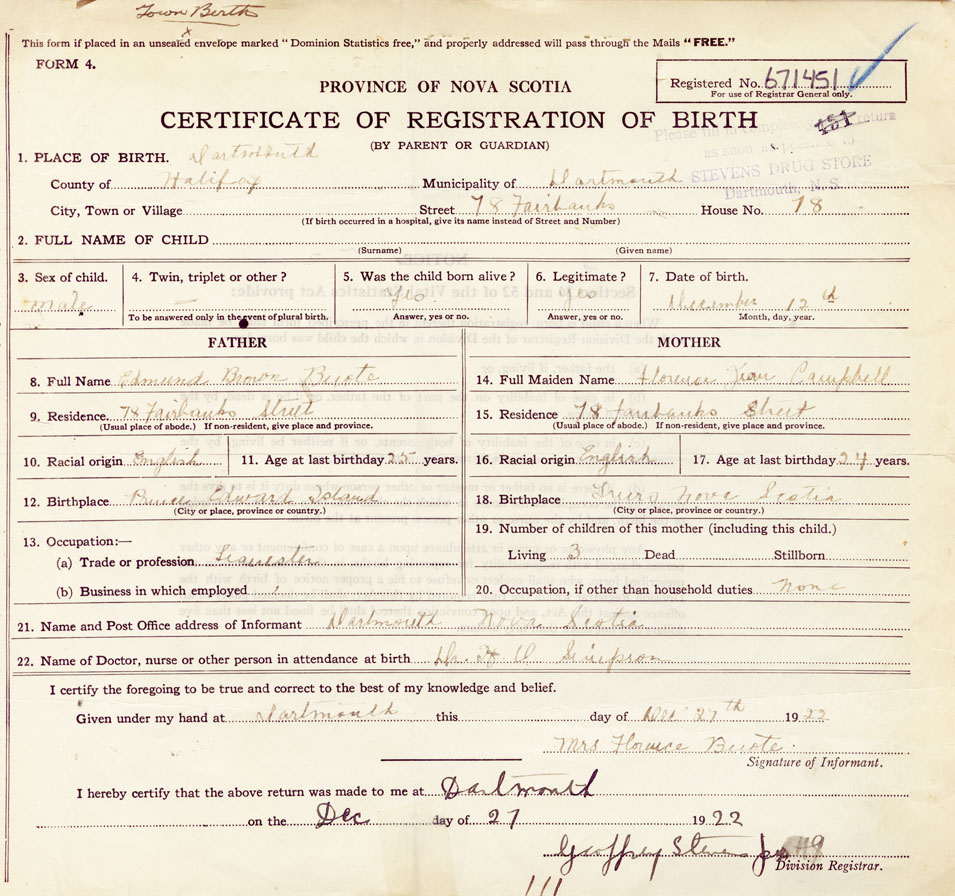 Town Berth
x
This form if placed in an unsealed envelope marked "Dominion Statistics free," and properly addressed will pass through the Mails "FREE."
FORM 4.
Registered No. 671451
For use of Registrar General only.
PROVINCE OF NOVA SCOTIA
CERTIFICATE OF REGISTRATION OF BIRTH
(BY PARENT OR GUARDIAN)
151
Please fill in completely and return
as soon as possible to
STEVENS DRUG STORE
Dartmouth, N. S.
1. PLACE OF BIRTH. Dartmouth
County of Halifax Municipality of Dartmouth
City, Town or Village Street 78 Fairbanks House No. 78
(If birth occurred in a hospital, give its name instead of Street and Number)
2. FULL NAME OF CHILD
(Surname) (Given name)
3. Sex of child. 4. Twin, triplet or other? 5. Was the child born alive? 6. Legitimate? 7. Date of birth.
Male — Yes Yes December 12th
To be answered only in the event of plural birth. Answer, yes or no. Answer, yes or no. Month, day, year.
FATHER MOTHER
8. Full Name Edmund Brown Buote 14. Full Maiden Name Florence Jean Campbell
9. Residence. 78 Fairbanks Street 15. Residence 78 Fairbanks Street
(Usual place of abode.) If non-resident, give place and province. (Usual place of abode.) If non-resident, give place and province.
10. Racial origin English 11. Age at last birthday 25 years. 16. Racial origin English 17. Age at last birthday 24 years.
12. Birthplace Prince Edward Island 18. Birthplace Truro Nova Scotia
(City or place, province or country.) (City or place, province or country.)
13. Occupation:— 19. Number of children of this mother (including this child.)
(a) Trade or profession Living 3 Dead Stillborn
(b) Business in which employed 20. Occupation, if other than household duties None
21. Name and Post Office address of Informant Dartmouth Nova Scotia
22. Name of Doctor, nurse or other person in attendance at birth Dr. H O Simpson
I certify the foregoing to be true and correct to the best of my knowledge and belief.
Given under my hand at Dartmouth this day of Dec 27th 1922
Mrs Florence Buote.
Signature of Informant.
I hereby certify that the above return was made to me at Dartmouth
on the Dec day of 27 1922
Geoffrey Stevens
Division Registrar.